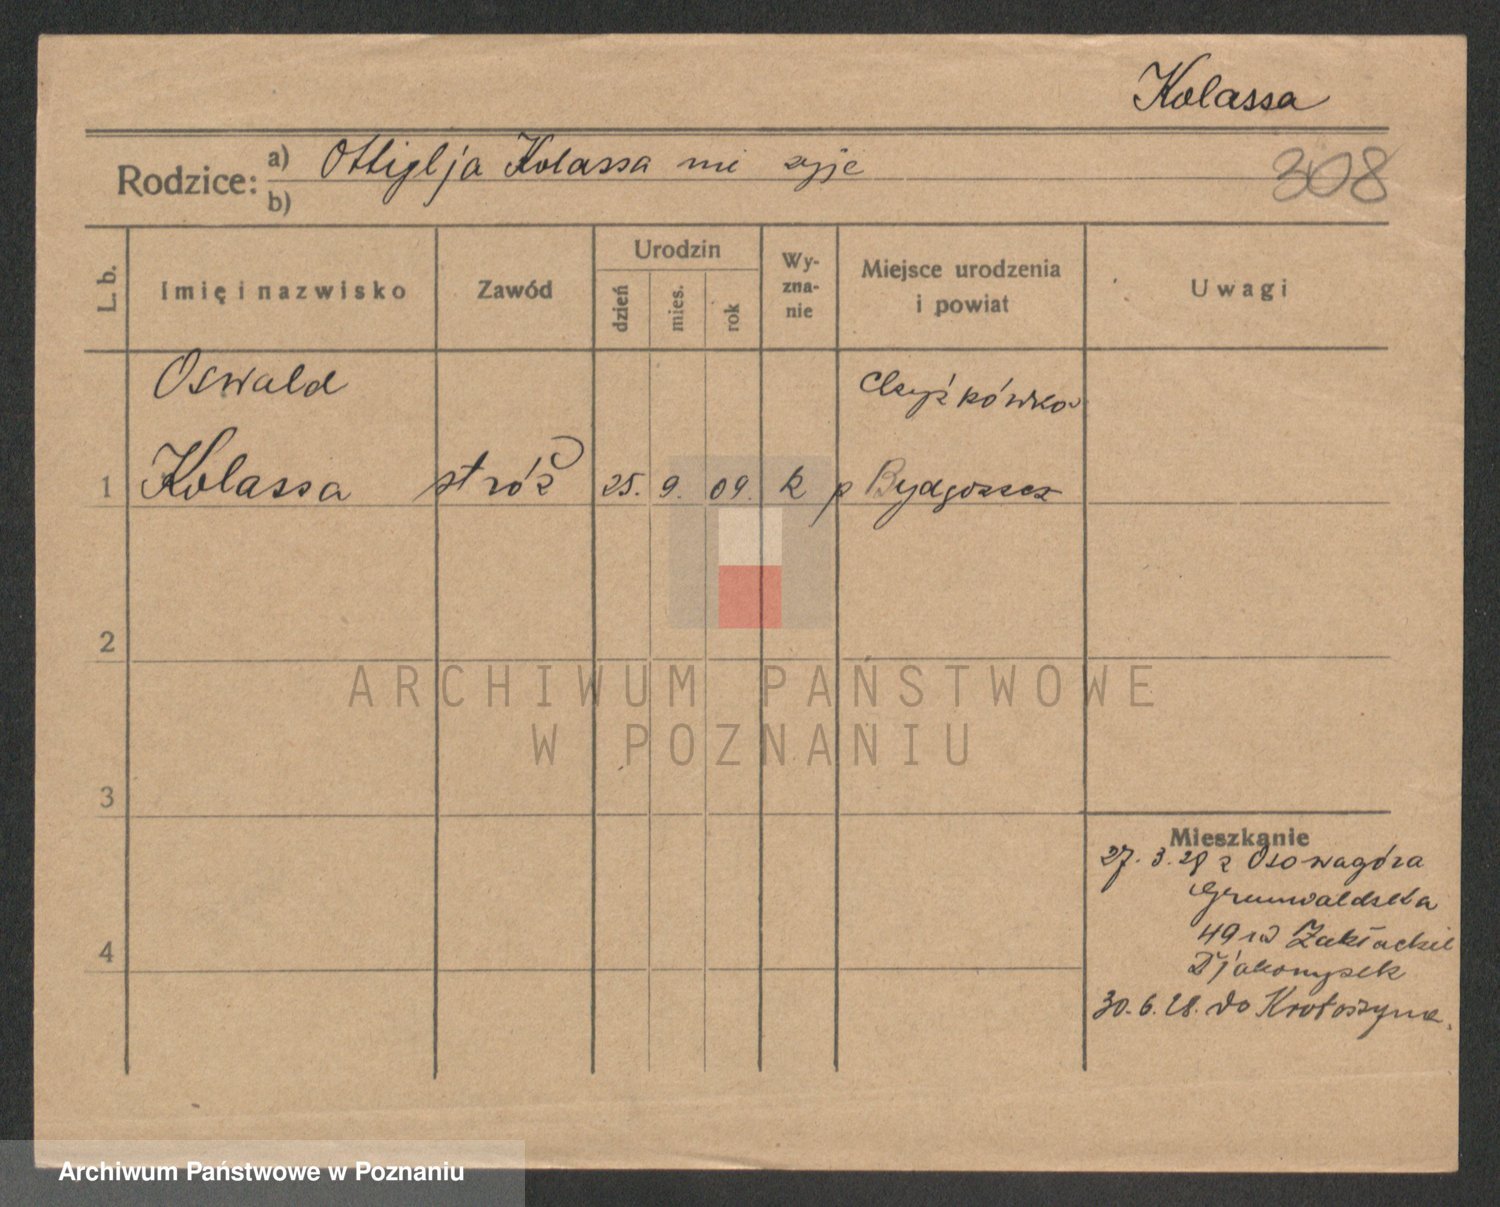 Kolassa
Rodzice: a) Ottiglja Kolassa nie zyje
b)
308
L. b. Imię i nazwisko Zawód Urodzin dzień mies. rok Wy-zna-nie Miejsce urodzenia i powiat Uwagi
Oswald Czyżkówko
1 Kolassa stróż 25. 9. 09. k p Bydgoszcz
2
3
4
Mieszkanie
27. 3. 28 z Osowagóra
Grunwaldzka
49 Zakład
30. 6. 28. do Krotoszyna.
ARCHIWUM PAŃSTWOWE
W POZNANIU
Archiwum Państwowe w Poznaniu